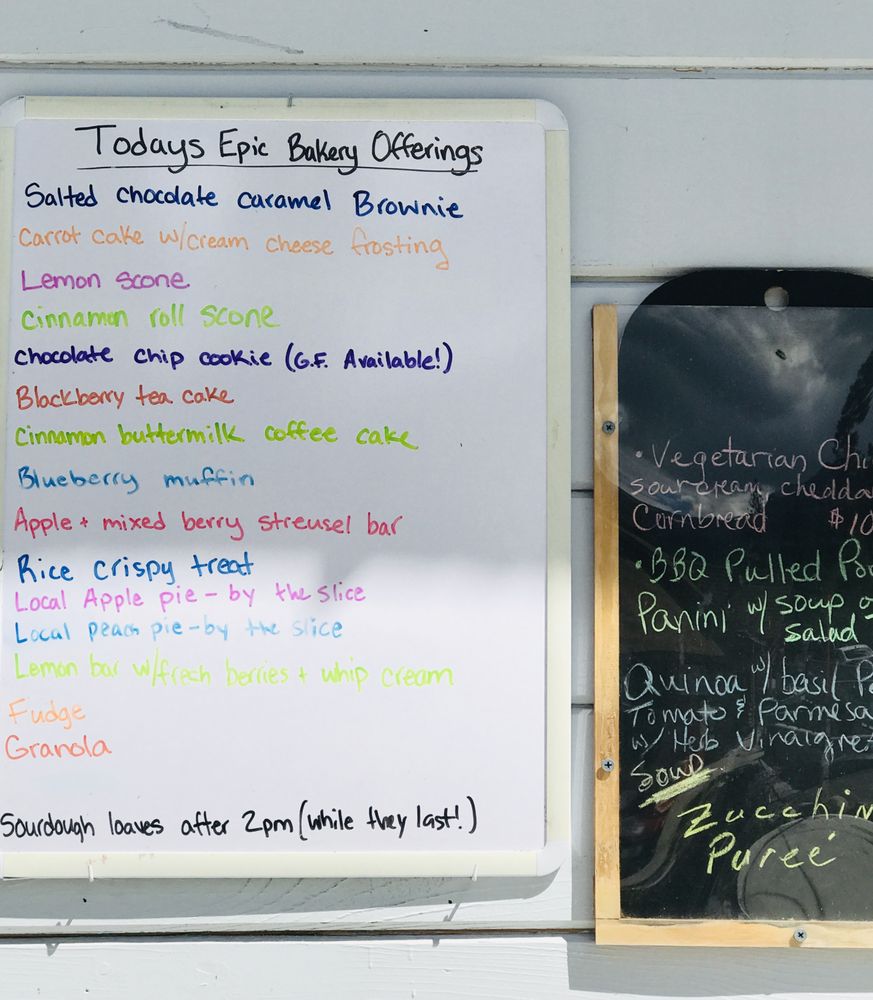 Todays Epic Bakery Offerings
Salted chocolate caramel Brownie
Carrot cake w/cream cheese frosting
Lemon scone
Cinnamon roll scone
chocolate chip cookie (G.F. Available!)
Blackberry tea cake
Cinnamon buttermilk coffee cake
Blueberry muffin
Apple + mixed berry streusel bar
Rice crispy treat
Local Apple pie - by the slice
Local peach pie - by the slice
Lemon bar w/fresh berries + whip cream
Fudge
Granola
Sourdough loaves after 2pm (while they last!)
• Vegetarian Chi
sour cream, chedda
Cornbread $10
• BBQ Pulled Po
Panini w/ soup o
salad
Quinoa w/ basil P
Tomato & Parmesa
w/ Herb Vinaigre
Soup
Zucchin
Pureé